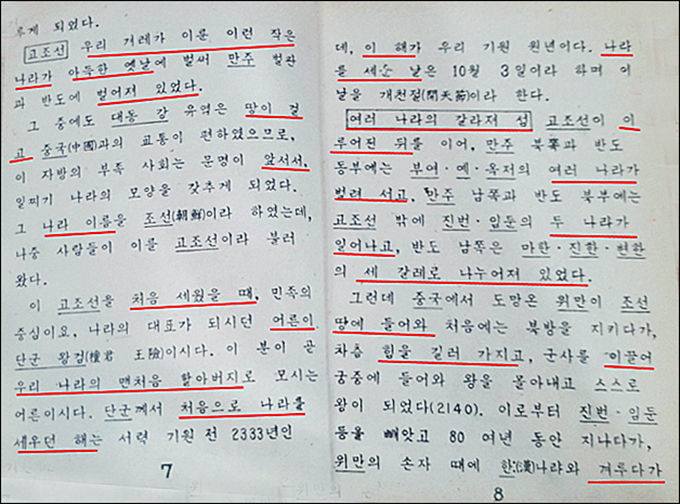 루게 되었다.
고조선 우리 겨레가 이룬 이런 작은
나라가 아득한 옛날에 벌써 만주 벌판
과 반도에 벌어져 있었다.
그 중에도 대동 강 유역은 땅이 걸
고 중국(中國)과의 교통이 편하였으므로,
이 지방의 부족 사회는 문명이 앞서서,
일찌기 나라의 모양을 갖추게 되었다.
그 나라 이름을 조선(朝鮮)이라 하였는데,
나중 사람들이 이를 고조선이라 불러
왔다.
이 고조선을 처음 세웠을 때, 민족의
중심이요, 나라의 대표가 되시던 어른이
단군 왕검(檀君 王險)이시다. 이 분이 곧
우리 나라의 맨처음 할아버지로 모시는
어른이시다. 단군께서 처음으로 나라를
세우던 해는 서력 기원 전 2333년인
7
데, 이 해가 우리 기원 원년이다. 나라
를 세운 날은 10월 3일이라 하며 이
날을 개천절(開天節)이라 한다.
여러 나라의 갈라져 섬 고조선이 이
루어진 뒤를 이어, 만주 북쪽과 반도
동부에는 부여·예·옥저의 여러 나라가
벌려 서고, 만주 남쪽과 반도 북부에는
고조선 밖에 진번·임둔의 두 나라가
일어나고, 반도 남쪽은 마한·진한·변한
의 세 갈레로 나누어져 있었다.
그런데 중국에서 도망온 위만이 조선
땅에 들어와 처음에는 북방을 지키다가,
차츰 힘을 길러 가지고, 군사를 이끌어
궁중에 들어와 왕을 몰아내고 스스로
왕이 되었다(2140). 이로부터 진번·임둔
등을 빼앗고 80 여년 동안 지나다가,
위만의 손자 때에 한(漢)나라와 겨루다가
8